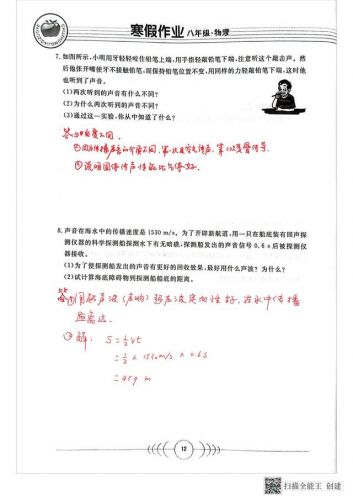 寒假作业 八年级·物理
7. 如图所示，小明用牙轻轻咬住铅笔上端，用手指轻敲铅笔下端，注意听这个敲击声，然
后他张开嘴使牙不接触铅笔，而保持铅笔位置不变，用同样的力轻敲铅笔下端，这时他
也听到了声音。
(1)两次听到的声音有什么不同？
(2)为什么两次听到的声音不同？
(3)通过这一实验，你从中知道了什么？
答：①响度不同。
②因为传播声音的介质不同，第一次是空气传声，第二次是骨传导。
③说明固体传声性能比气体好。
8. 声音在海水中的传播速度是 1530 m/s。为了开辟新航道，用一只在船底装有回声探
测仪器的科学探测船探测水下有无暗礁，探测船发出的声音信号 0.6 s 后被探测仪
器接收。
(1)为了使探测船发出的声音有更好的回收效果，最好用什么声波？为什么？
(2)试计算海底障碍物到探测船船底的距离。
答：①用超声波（声呐）超声波定向性好，在水中传播
距离远。
②解： S=½vt
=½×1530m/s×0.6s
=459 m
12
扫描全能王 创建